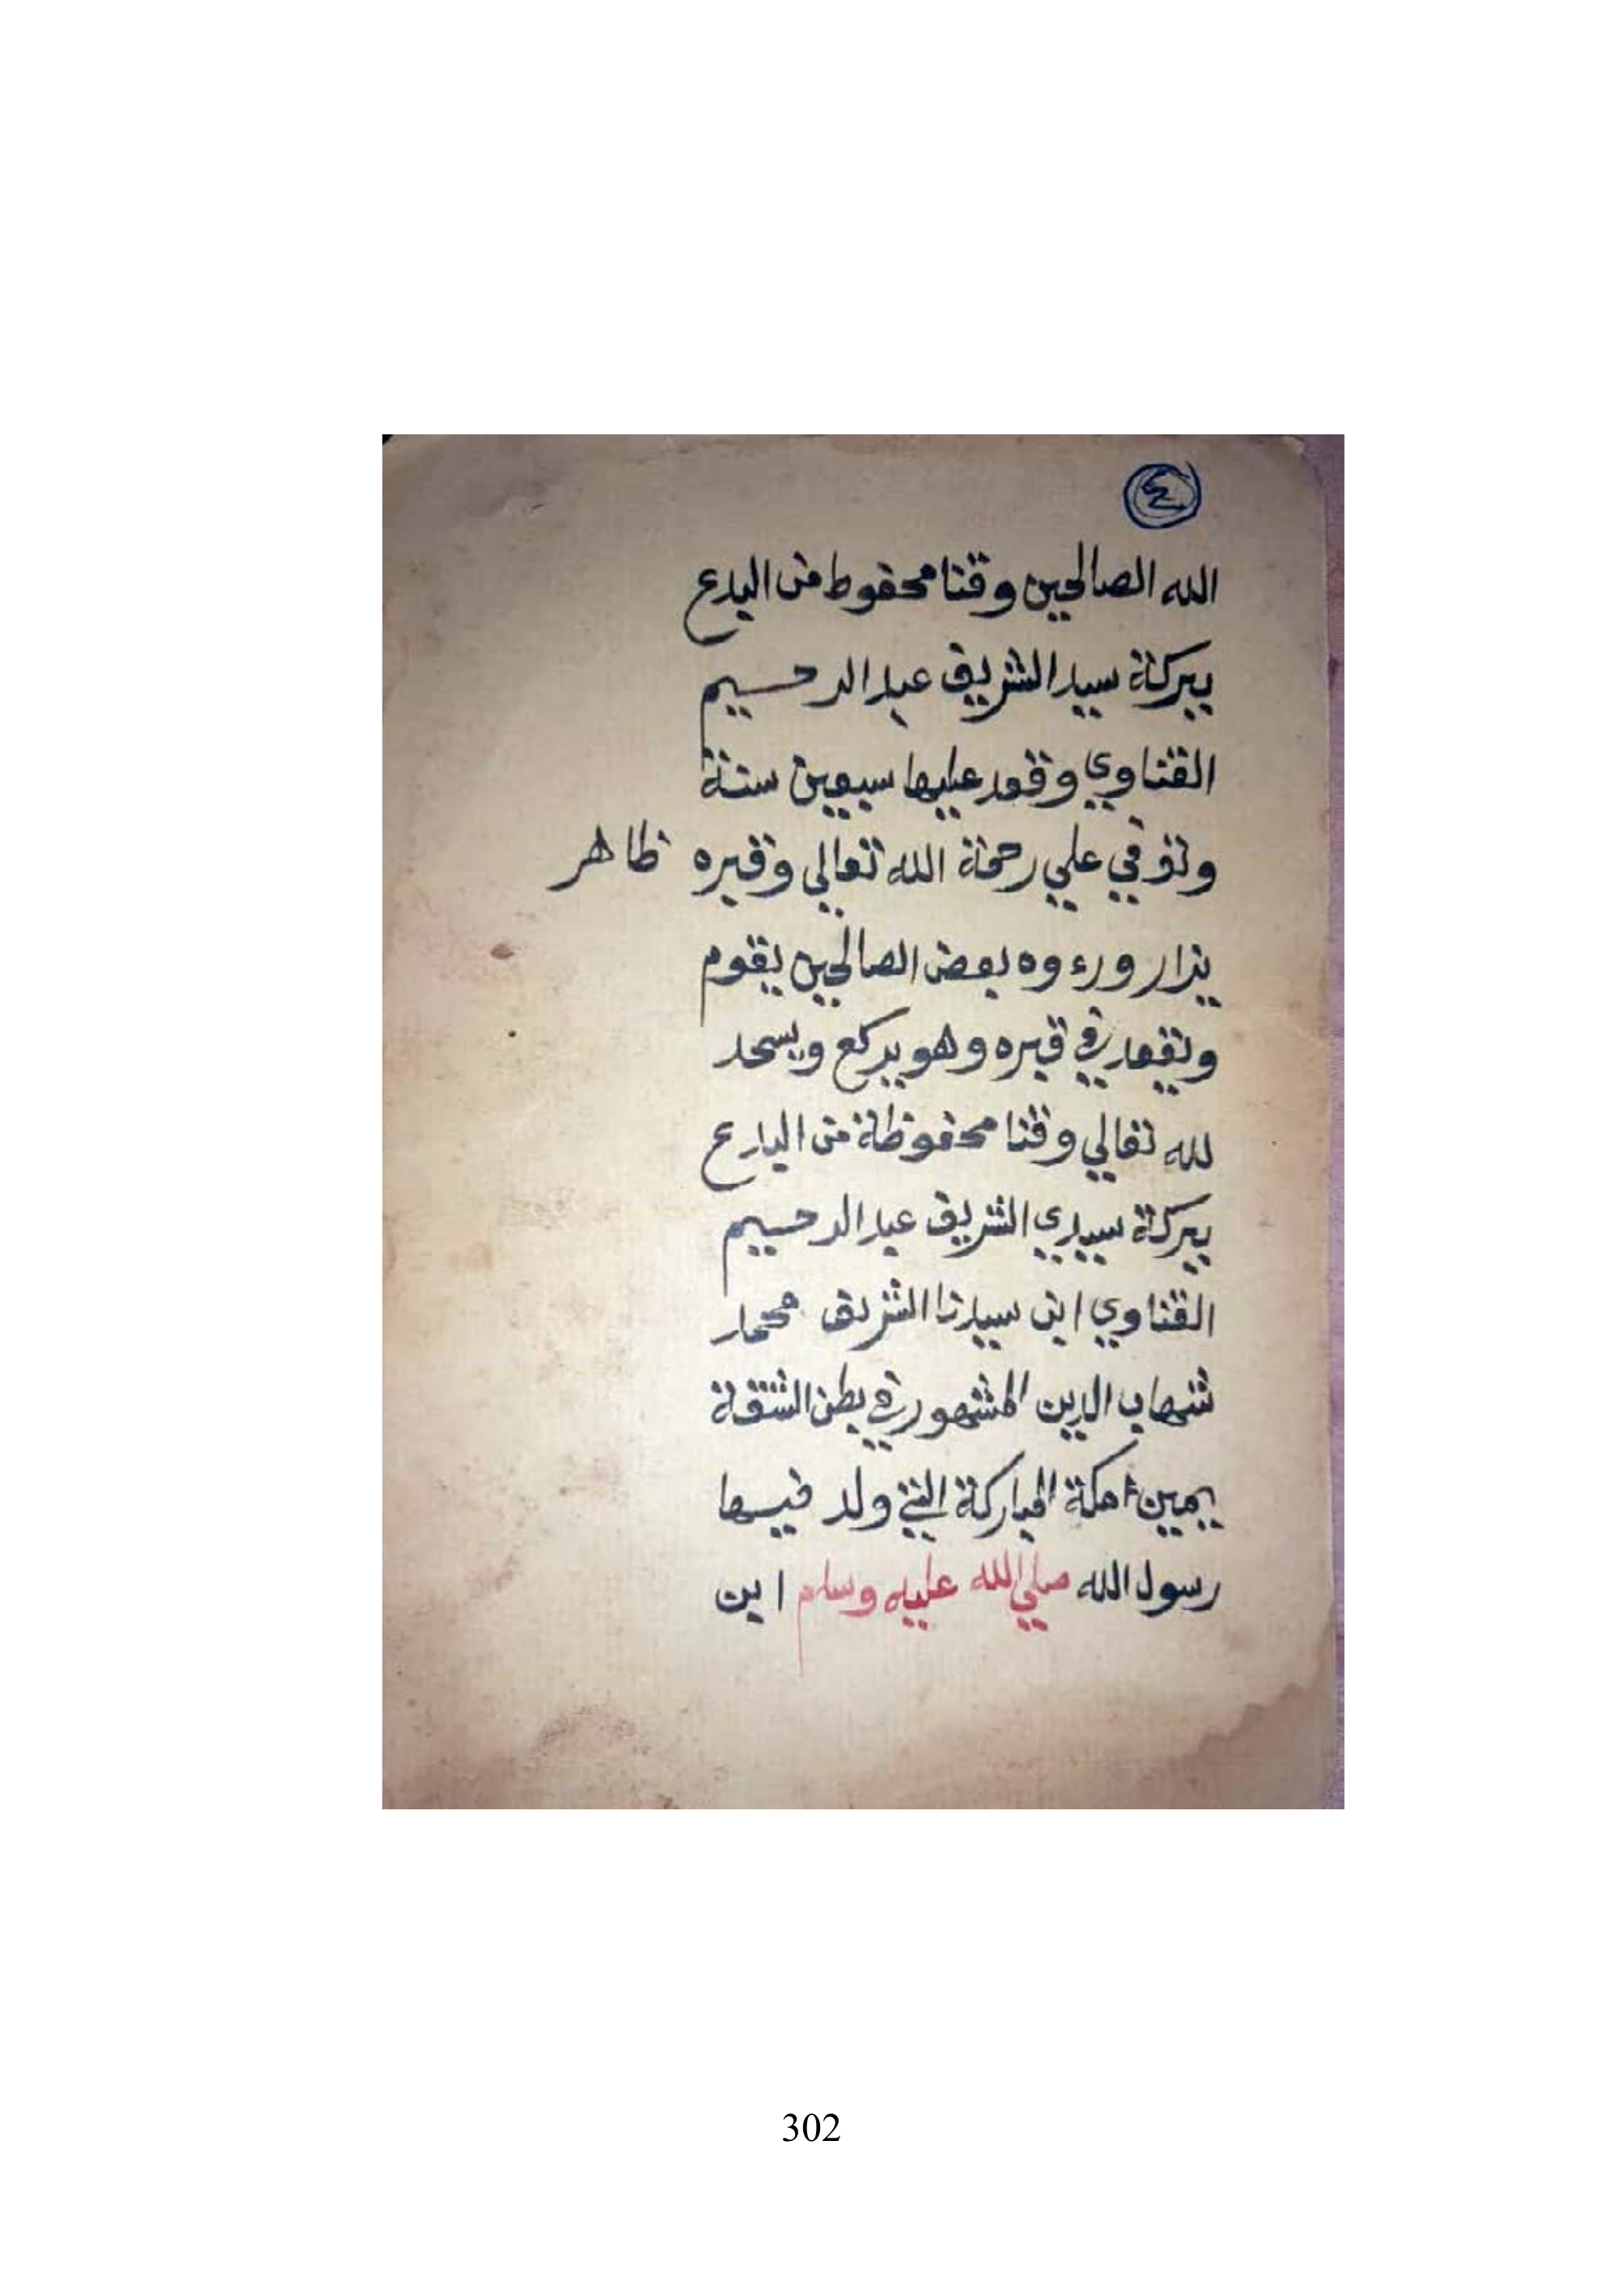 ٤
الله الصالحين وقنا محفوط من البدع
ببركة سيد الشريف عبد الرحيم
القناوي وقعد عليها سبعين سنة
وتوفي علي رحمة الله تعالي وقبره ظاهر
يزار ورءوه بعض الصالحين يقوم
ويقعد في قبره وهو يركع ويسجد
لله تعالي وقنا محفوظة من البدع
ببركة سيدي الشريف عبد الرحيم
القناوي ابن سيدنا الشريف محمد
شهاب الدين المشهور في بطن الشقة
بيمين امكة المباركة التي ولد فيها
رسول الله صلي الله عليه وسلم ابن
302